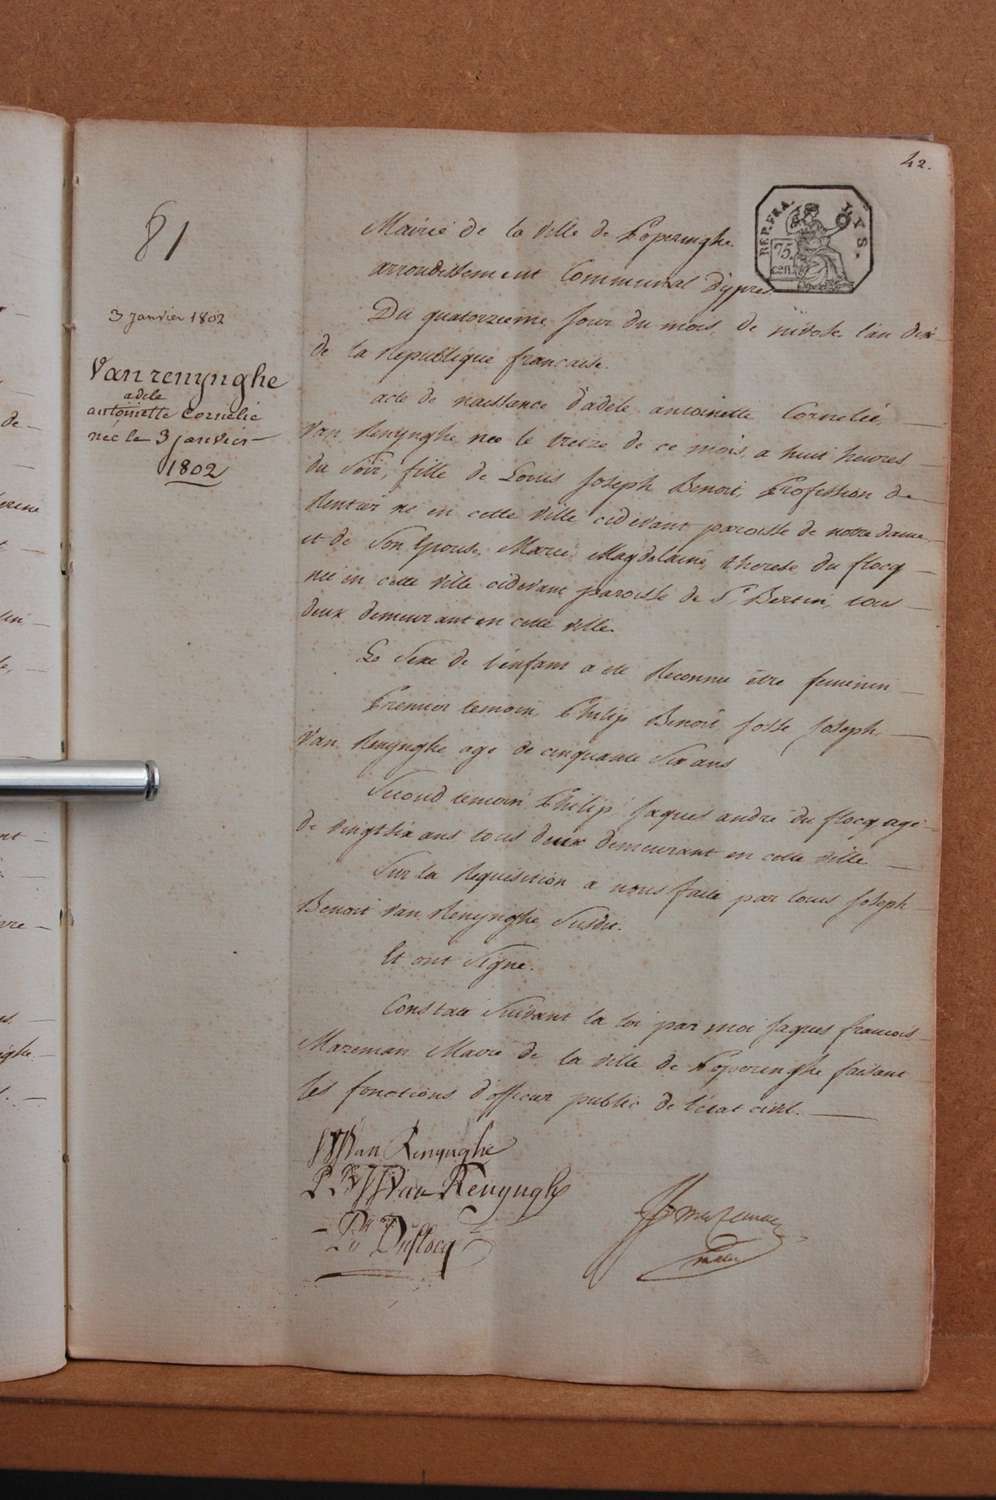 42.
REP. FRA.
LYS.
75.
cen.
81
Mairie de la ville de Poperinghe
arrondissement Communal d'ypres
3 janvier 1802
Du quatorzieme jour du mois de nivose l'an dix
de la Republique française.
Vanrenynghe
adele
antoinette Cornelie
née le 3 janvier
1802
acte de naissance d'adele antoinette Cornelie
Van Renynghe née le treize de ce mois a huit heures
du Soir, fille de Louis Joseph Benoit, Profession de
Rentier né en cette ville cidevant paroisse de notre dame
et de Son Epouse Marie Magdelaine therese du flocq
née en cette ville cidevant paroisse de St Bertin, tous
deux demeurant en cette ville.
Le Sexe de l'enfant a été Reconnu être feminin
Premier temoin, Philip Benoit Josse Joseph
Van Renynghe agé de cinquante Six ans
Second temoin Philip Jaques andré du flocq agé
de vingtsix ans tous deux demeurant en cette ville
Sur la Requisition a nous faite par Louis Joseph
Benoit Van Renynghe Susdit.
Et ont Signé.
Constaté Suivant la loi par moi Jaques francois
Mazeman Maire de la ville de Poperinghe faisant
les fonctions d'officier public de l'état civil.
Van Renynghe
Van Renynghe
Duflocq